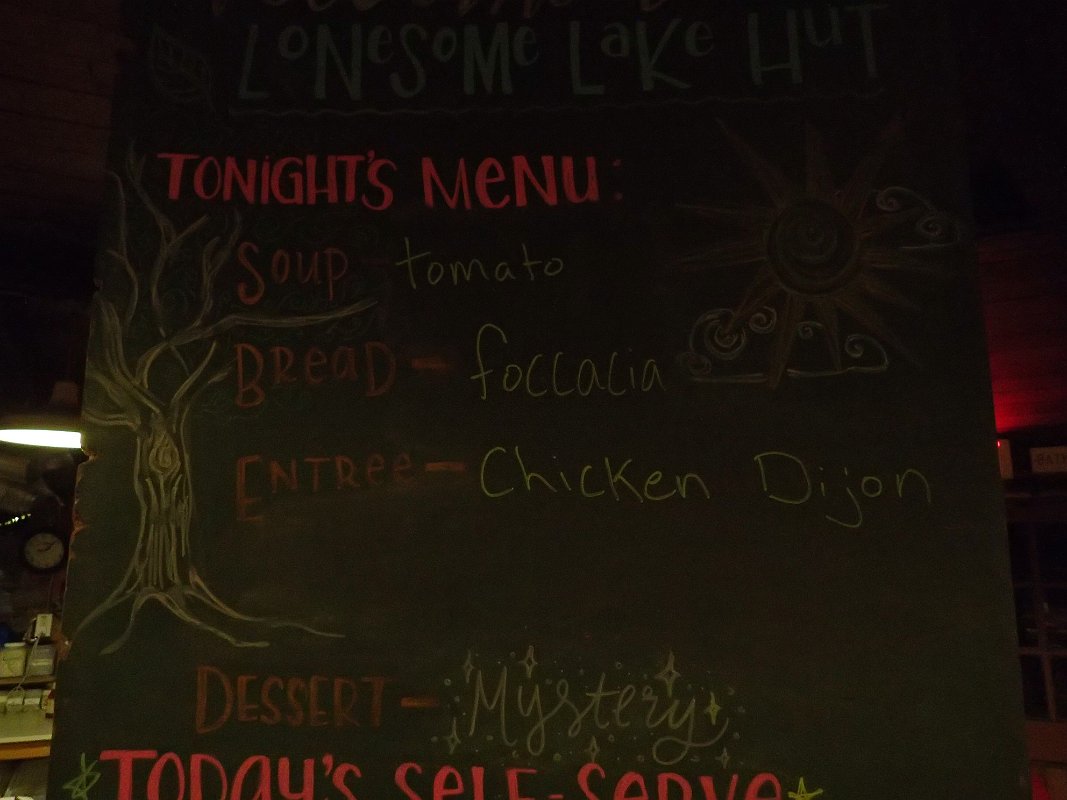 LoNeSoMe LaKe HuT
TONiGHT'S MeNU:
Soup - tomato
BReaD - foccacia
ENTRee - Chicken Dijon
DESSERT - Mystery
ToDay's SeLF-SeRVe